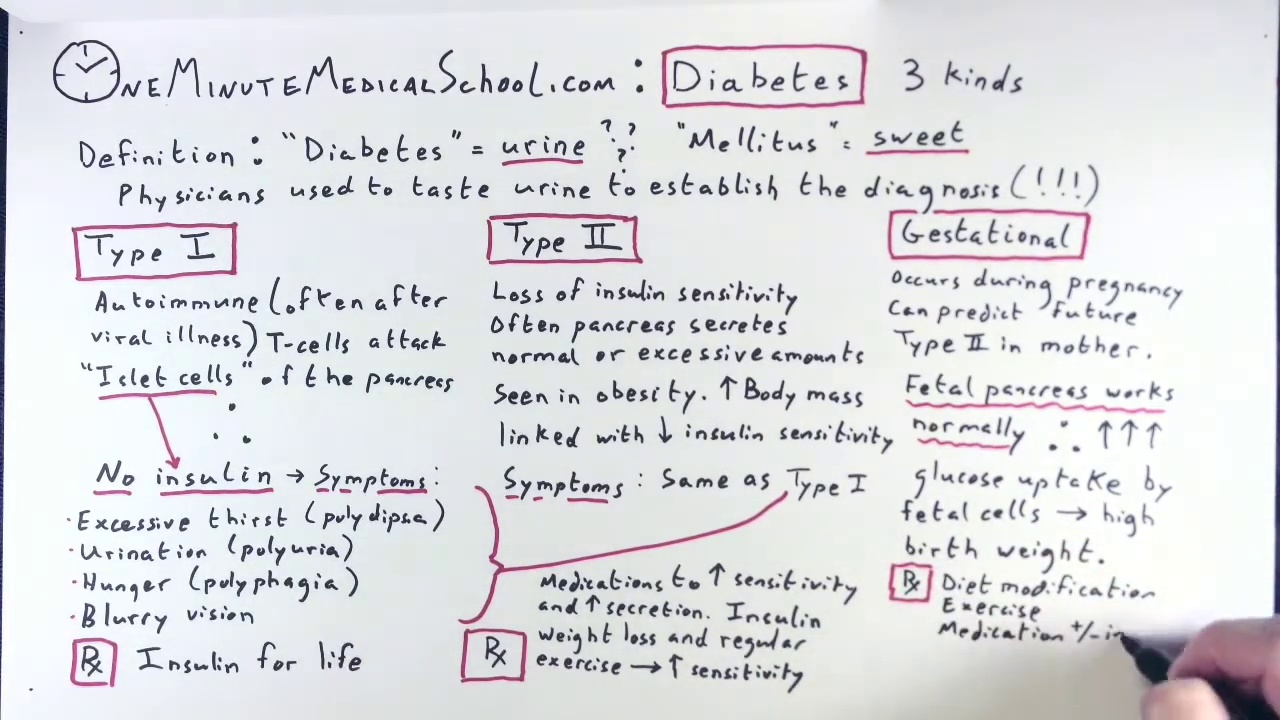 OneMinuteMedicalSchool.com : Diabetes 3 kinds
Definition : "Diabetes" = urine ??? "Mellitus" = sweet
Physicians used to taste urine to establish the diagnosis (!!!)
Type I
Autoimmune (often after
viral illness) T-cells attack
"Islet cells" of the pancreas
∴
No insulin → Symptoms :
· Excessive thirst (polydipsia)
· Urination (polyuria)
· Hunger (polyphagia)
· Blurry vision
Rx Insulin for life
Type II
Loss of insulin sensitivity
Often pancreas secretes
normal or excessive amounts
Seen in obesity. ↑ Body mass
linked with ↓ insulin sensitivity
Symptoms : Same as Type I
Medications to ↑ sensitivity
and ↑ secretion. Insulin
weight loss and regular
Rx exercise → ↑ sensitivity
Gestational
Occurs during pregnancy
Can predict future
Type II in mother.
Fetal pancreas works
normally ∴ ↑↑↑
glucose uptake by
fetal cells → high
birth weight.
Rx Diet modification
Exercise
Medication +/- in